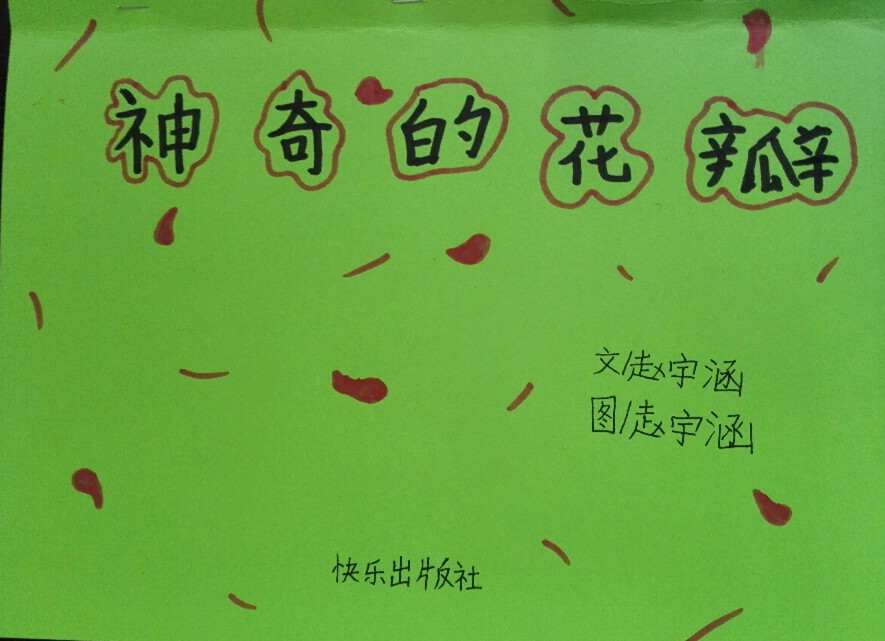 神奇的花瓣
文/赵宇涵
图/赵宇涵
快乐出版社